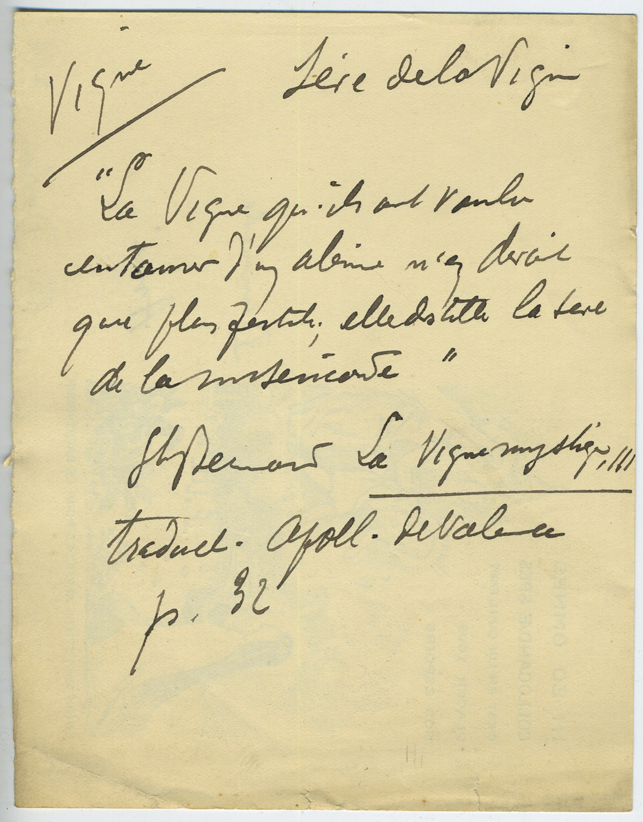 Vigne
Sève de la Vigne
"La Vigne qu'ils ont voulu
entamer n'en devait
que plus fertile; elle distille la sève
de la miséricorde"
St Bernard La Vigne mystique, III
traduct. Apoll. de Valence
p. 32